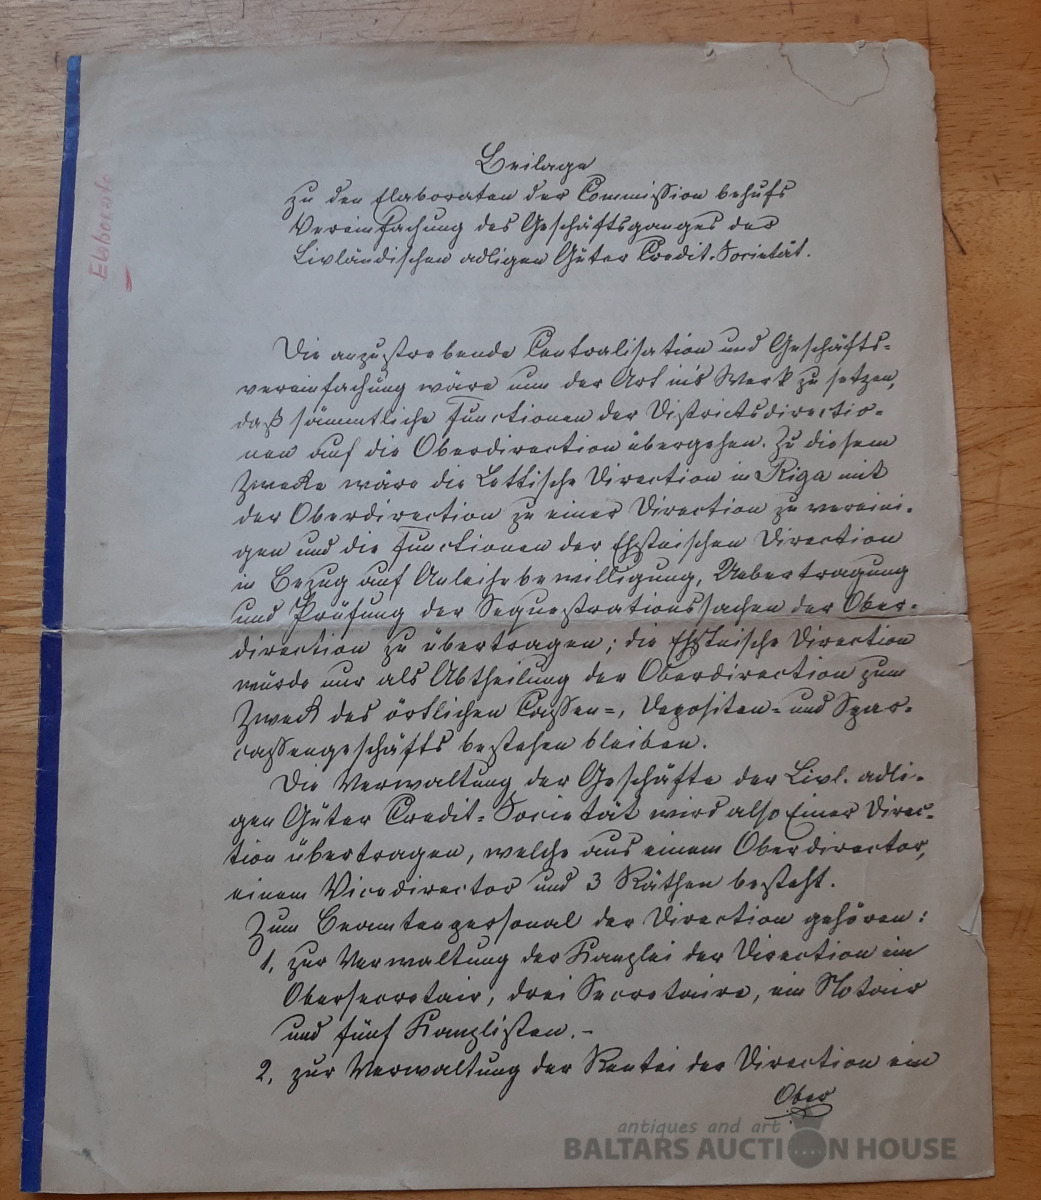 Elaborate
Beilage
zu den Elaboraten der Commission behufs
Vereinfachung des Geschäftsganges der
Livländischen adligen Güter Credit-Societät.
Die anzustrebende Centralisation und Geschäfts-
vereinfachung wäre nun der Art in's Werk zu setzen,
daß sämmtliche Functionen der Districtsdirectio-
nen auf die Oberdirection übergehen. Zu diesem
Zwecke wäre die Lettische Direction in Riga mit
der Oberdirection zu einer Direction zu vereini-
gen und die Functionen der Ehstnischen Direction
in Bezug auf Anleihebewilligung, Uebertragung
und Prüfung der Sequestrationssachen der Ober-
direction zu übertragen; die Ehstnische Direction
würde nur als Abtheilung der Oberdirection zum
Zweck des örtlichen Cassen-, Depositen- und Spar-
cassengeschäfts bestehen bleiben.
Die Verwaltung der Geschäfte der Livl. adli-
gen Güter Credit-Societät wird also Einer Direc-
tion übertragen, welche aus einem Oberdirector,
einem Vicedirector und 3 Räthen besteht.
Zum Beamtenpersonal der Direction gehören:
1. zur Verwaltung der Kanzlei der Direction ein
Obersecretair, drei Secretaire, ein Notair
und fünf Kanzlisten.-
2. zur Verwaltung der Rentei der Direction ein
Ober
antiques and art
BALTARS AUCTION HOUSE